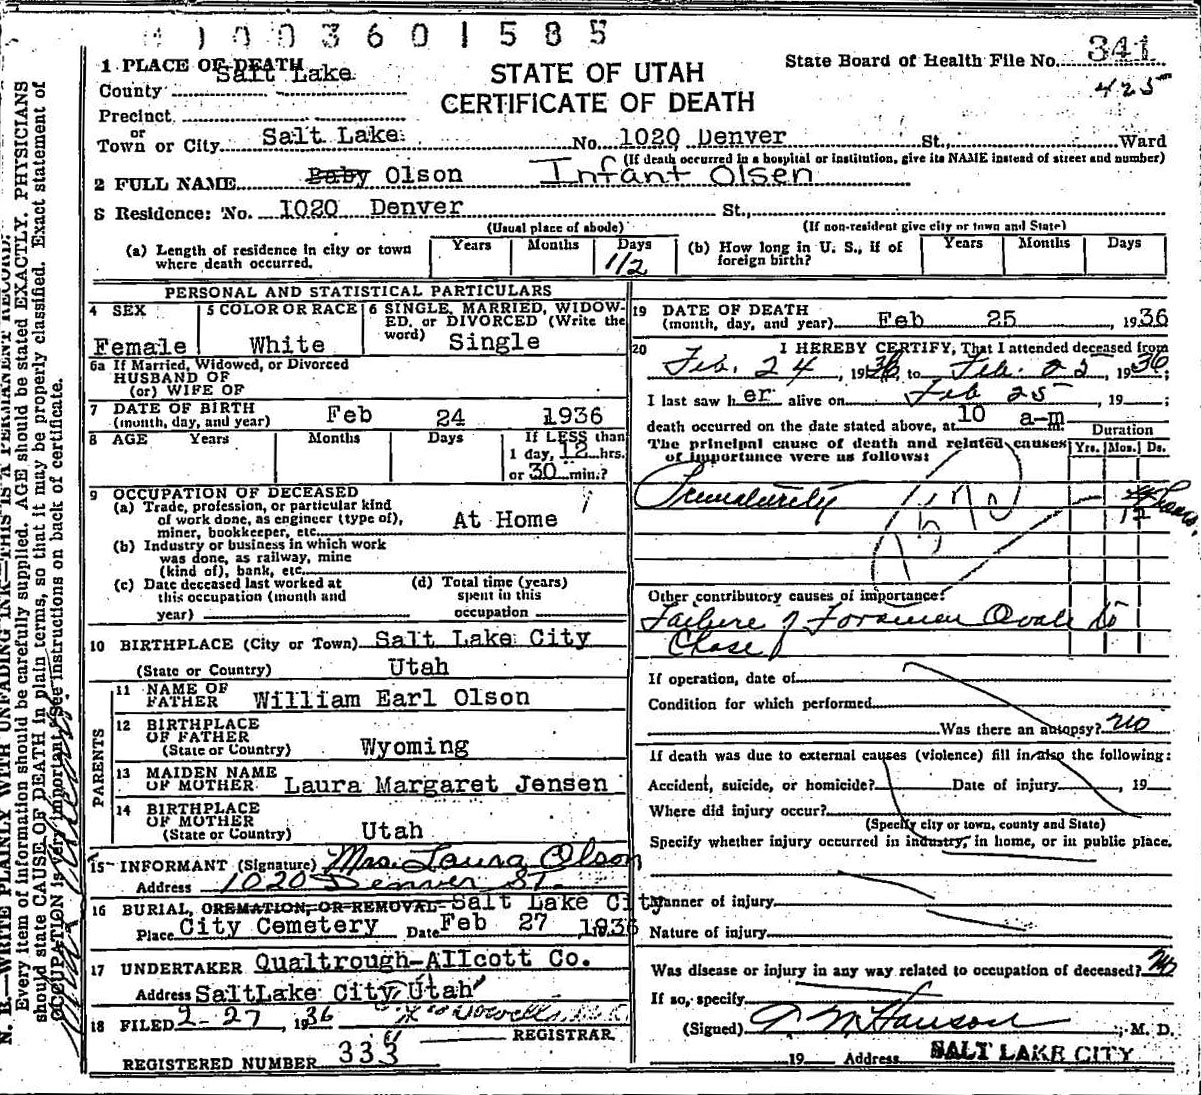 1003601585
1 PLACE OF DEATH
Salt Lake
County
STATE OF UTAH
CERTIFICATE OF DEATH
State Board of Health File No. 341
425
Precinct
or
Town or City Salt Lake No. 1020 Denver St., Ward
(If death occurred in a hospital or institution, give its NAME instead of street and number)
2 FULL NAME Baby Olson Infant Olsen
3 Residence: No. 1020 Denver St.,
(Usual place of abode) (If non-resident give city or town and State)
(a) Length of residence in city or town where death occurred. Years Months Days 1/2
(b) How long in U. S., if of foreign birth? Years Months Days
PERSONAL AND STATISTICAL PARTICULARS
4 SEX Female
5 COLOR OR RACE White
6 SINGLE, MARRIED, WIDOWED, or DIVORCED (Write the word) Single
6a If Married, Widowed, or Divorced
HUSBAND OF
(or) WIFE OF
7 DATE OF BIRTH
(month, day, and year) Feb 24 1936
8 AGE Years Months Days If LESS than
1 day, 12 hrs.
or 30 min.?
9 OCCUPATION OF DECEASED
(a) Trade, profession, or particular kind
of work done, as engineer (type of),
miner, bookkeeper, etc. At Home
(b) Industry or business in which work
was done, as railway, mine
(kind of), bank, etc.
(c) Date deceased last worked at
this occupation (month and
year)
(d) Total time (years)
spent in this
occupation
10 BIRTHPLACE (City or Town) Salt Lake City
(State or Country) Utah
PARENTS
11 NAME OF
FATHER William Earl Olson
12 BIRTHPLACE
OF FATHER
(State or Country) Wyoming
13 MAIDEN NAME
OF MOTHER Laura Margaret Jensen
14 BIRTHPLACE
OF MOTHER
(State or Country) Utah
15 INFORMANT (Signature) Mrs. Laura Olson
Address 1020 Denver St.
16 BURIAL, CREMATION, OR REMOVAL Salt Lake City
Place City Cemetery Date Feb 27 1936
17 UNDERTAKER Qualtrough-Allcott Co.
Address SaltLake City, Utah
18 FILED 2-27, 1936
REGISTRAR.
REGISTERED NUMBER 333
19 DATE OF DEATH
(month, day, and year) Feb 25, 1936
20 I HEREBY CERTIFY, That I attended deceased from
Feb. 24, 1936, to Feb. 25, 1936;
I last saw her alive on Feb 25, 19 ;
death occurred on the date stated above, at 10 a-m
The principal cause of death and related causes
of importance were as follows:
Duration
Yrs. Mos. Ds.
Prematurity 12 hours
Other contributory causes of importance:
Failure of Foramen Ovale to
Close
If operation, date of
Condition for which performed
Was there an autopsy? no
If death was due to external causes (violence) fill in also the following:
Accident, suicide, or homicide? Date of injury , 19
Where did injury occur?
(Specify city or town, county and State)
Specify whether injury occurred in industry, in home, or in public place.
Manner of injury
Nature of injury
Was disease or injury in any way related to occupation of deceased? No
If so, specify
(Signed) M Hanson, M. D.
19 Address SALT LAKE CITY
N. B.—WRITE PLAINLY WITH UNFADING INK—THIS IS A PERMANENT RECORD.
Every item of information should be carefully supplied. AGE should be stated EXACTLY. PHYSICIANS
should state CAUSE OF DEATH in plain terms, so that it may be properly classified. Exact statement of
OCCUPATION is very important. See instructions on back of certificate.